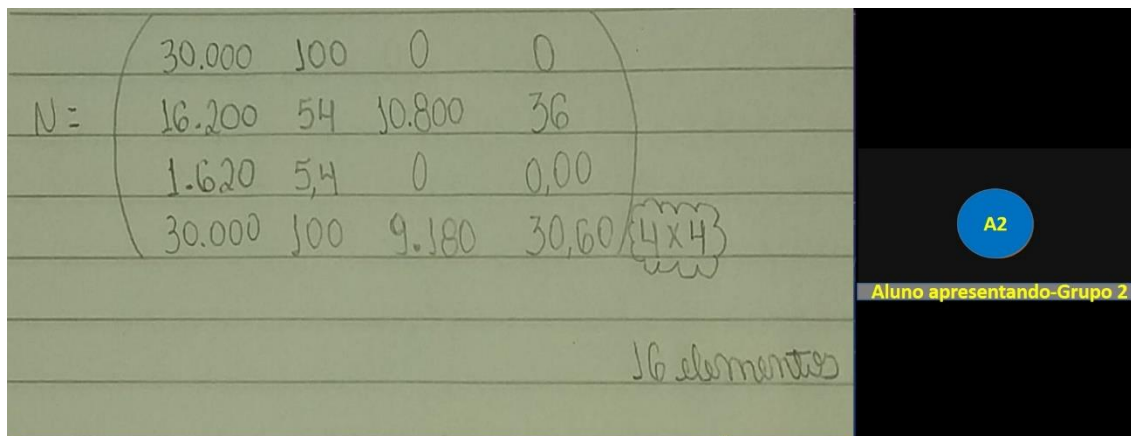 30.000 100 0 0
N = 16.200 54 10.800 36
1.620 5,4 0 0,00
30.000 100 9.180 30,60 4x4
16 elementos
A2
Aluno apresentando-Grupo 2